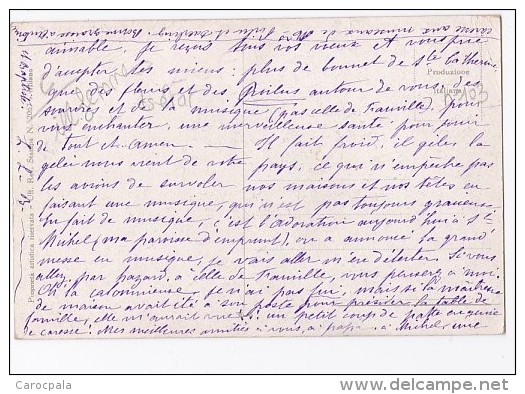 caresse aux minous de Bonne
aimable, je reçois tous vos vœux et vous prie
d'accepter les miens : plus de bonnet de Ste Catherine
que des fleurs et des Poilus autour de vous, des
sourires et de la musique (pas celle de Trauville) pour
vous enchanter, une merveilleuse santé pour jouir
de tout et amen. Il fait froid, il gèle, la
gelée nous vient de votre pays, ce qui n'empêche pas
les avions de survoler nos maisons et nos têtes en
faisant une musique, qui n'est pas toujours gracieuse.
En fait de musique, c'est l'adoration aujourd'hui à St
Michel (ma paroisse d'emprunt), on a annoncé la grand'
messe en musique, je vais aller m'en délecter. Si vous
allez, par hasard, à celle de Trauville, vous penserez à moi.
Oh la calomnieuse, je n'ai pas fui, mais si la maîtresse
de maison avait été à son poste pour présider la table de
famille, elle m'aurait vue ! un petit coup de patte en guise
de caresse ! Mes meilleures amitiés à vous, à papa, à Michel, une
Produzione
Italiana
Proprietà artistica riservata
Milano
Carocpala
www.delcampe.net